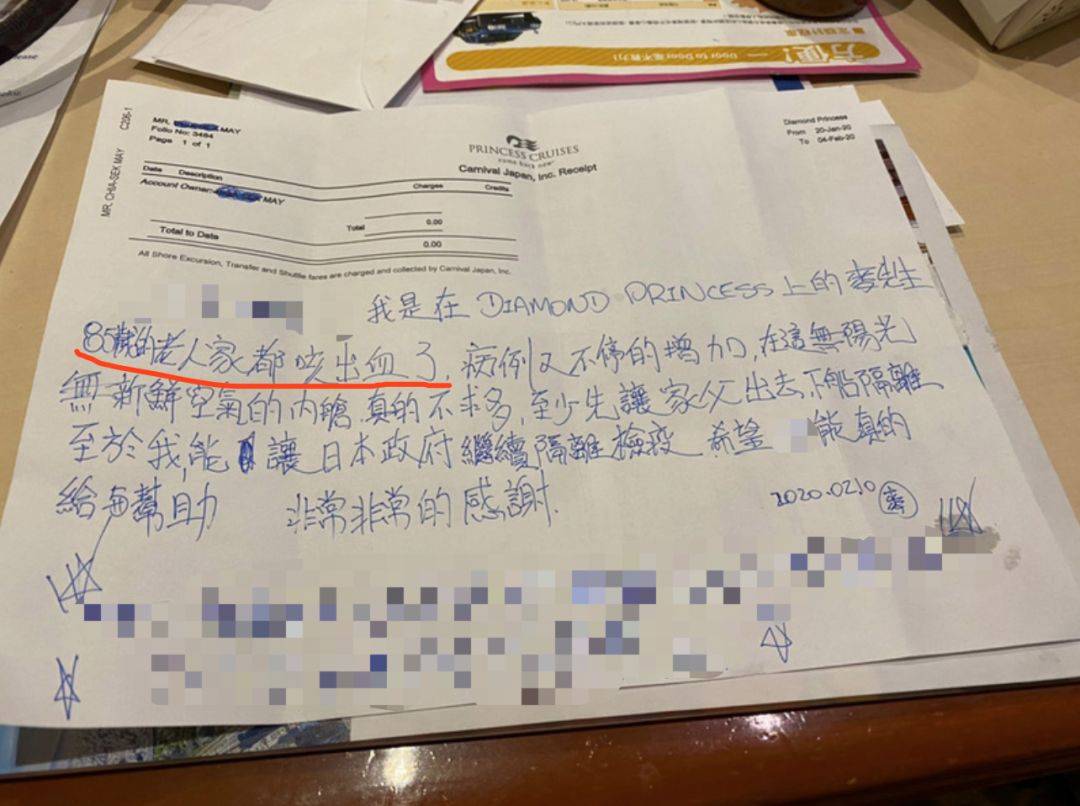 方便!
Door to Door
C206-1
MR. CHIA-SEK MAY
MR. MAY
Folio No: 3484
Page 1 of 1
PRINCESS CRUISES
come back new
Carnival Japan, Inc. Receipt
Diamond Princess
From 20-Jan-20
To 04-Feb-20
Date Description Charges Credits
Account Owner- MAY
Total 0.00
Total to Date 0.00
All Shore Excursion, Transfer and Shuttle fares are charged and collected by Carnival Japan, Inc.
我是在 DIAMOND PRINCESS 上的麥先生
85歲的老人家都咳出血了, 病例又不停的增加, 在這無陽光
無新鮮空氣的內艙, 真的不求多, 至少先讓家父出去, 下船隔離
至於我, 能讓日本政府繼續隔離檢疫. 希望 能真的
給與幫助 非常非常的感謝.
2020.02.10 麥